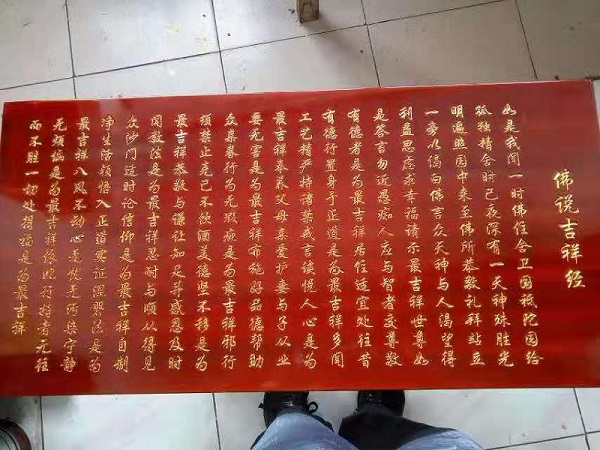 佛说吉祥经
如是我闻一时佛住舍卫国祇陀园给
孤独精舍时已夜深有一天神殊胜光
明遍照园中来至佛所恭敬礼拜站立
一旁以偈白佛言众天神与人渴望得
利益思虑求幸福请示最吉祥世尊如
是答言勿近愚痴人应与智者交尊敬
有德者是为最吉祥居住适宜处往昔
有德行置身于正道是为最吉祥多闻
工艺精严持诸禁戒言谈悦人心是为
最吉祥奉养父母亲爱护妻与子从业
要无害是为最吉祥布施好品德帮助
众亲眷行为无瑕疵是为最吉祥邪行
须禁止克己不饮酒美德坚不移是为
最吉祥恭敬与谦让知足并感恩及时
闻教法是为最吉祥忍耐与顺从得见
众沙门适时论信仰是为最吉祥自制
净生活领悟入正道实证涅槃法是为
最吉祥八风不动心无忧无污染宁静
无烦恼是为最吉祥依此行持者无往
而不胜一切处得福是为最吉祥